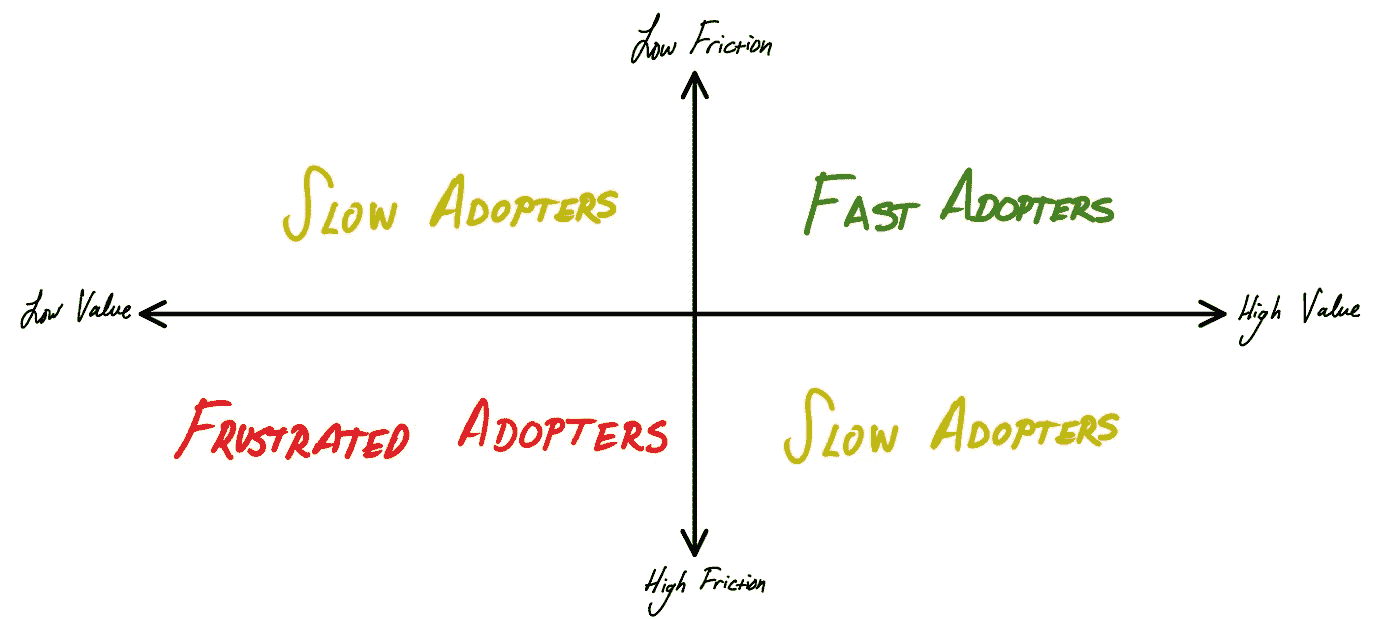 Low Friction
Slow Adopters
Fast Adopters
Low Value
High Value
Frustrated Adopters
Slow Adopters
High Friction